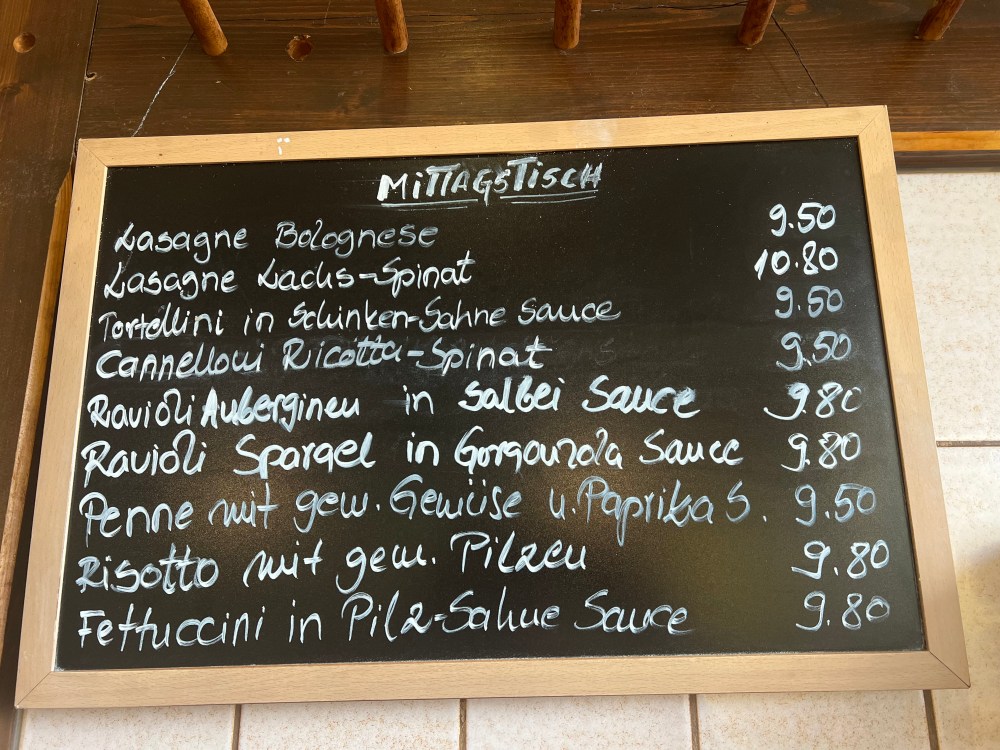 MITTAGSTISCH
Lasagne Bolognese 9.50
Lasagne Lachs-Spinat 10.80
Tortellini in Schinken-Sahne Sauce 9.50
Cannelloni Ricotta-Spinat 9.50
Ravioli Auberginen in Salbei Sauce 9.80
Ravioli Spargel in Gorgonzola Sauce 9.80
Penne mit gew. Gemüse u. Paprika S. 9.50
Risotto mit gem. Pilzen 9.80
Fettuccini in Pilz-Sahne Sauce 9.80